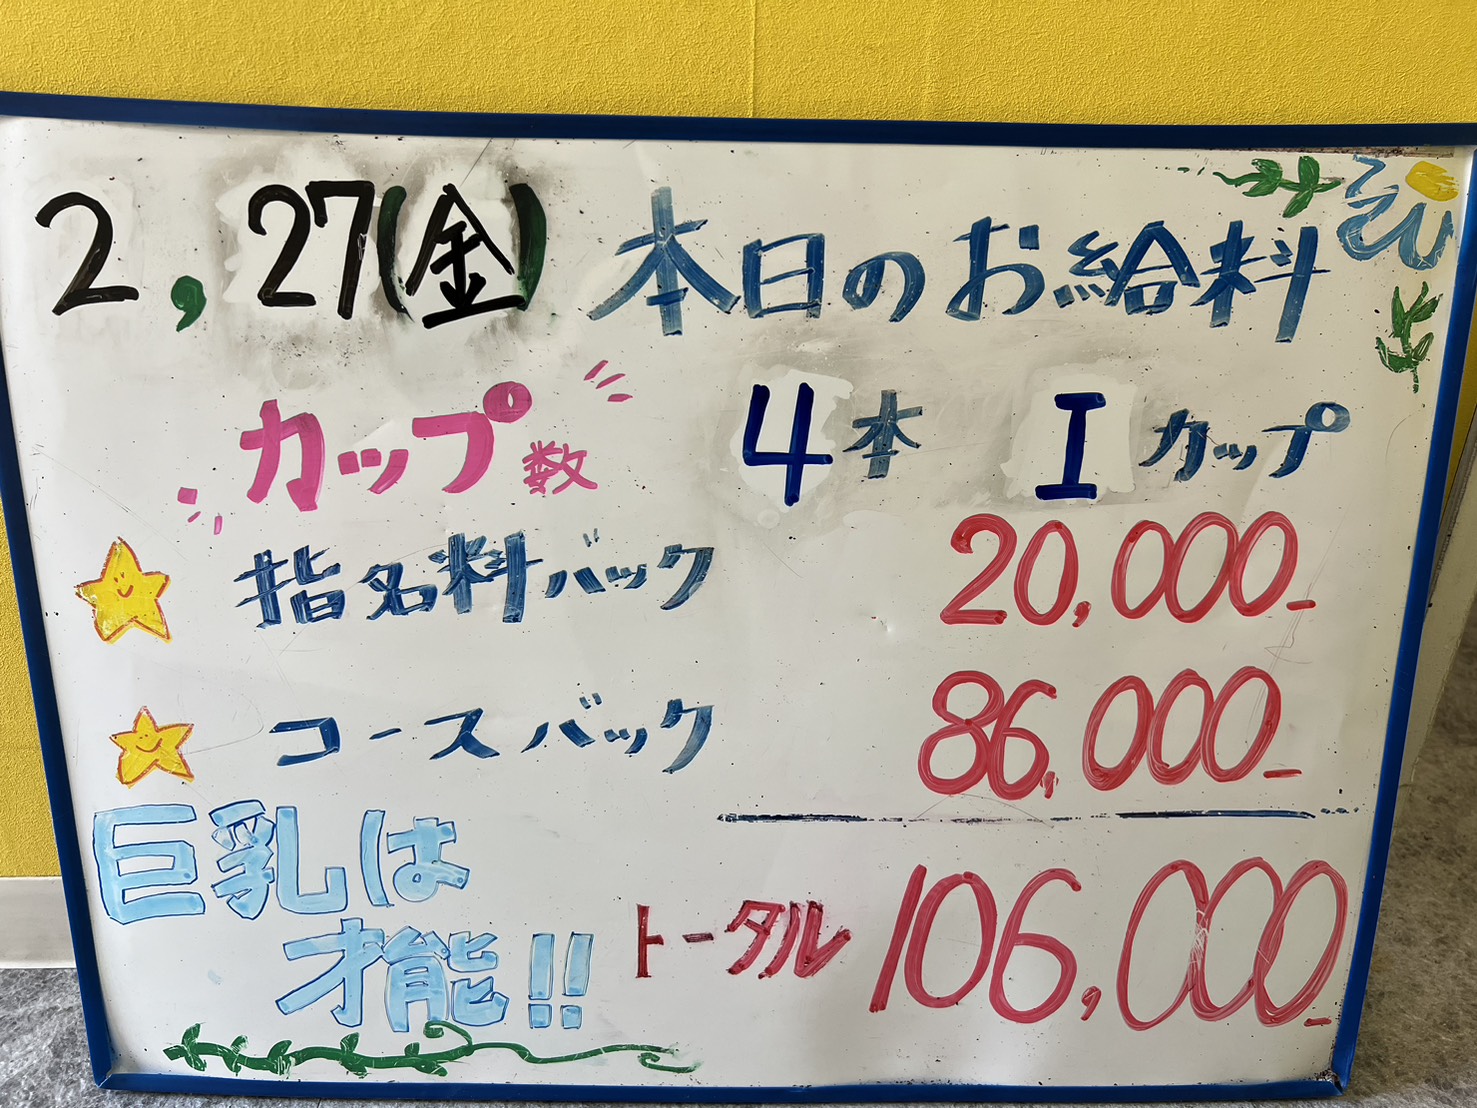 2,27(金) 本日のお給料
カップ数 4本 Iカップ
指名料バック 20,000-
コースバック 86,000-
巨乳は
才能!! トータル 106,000-